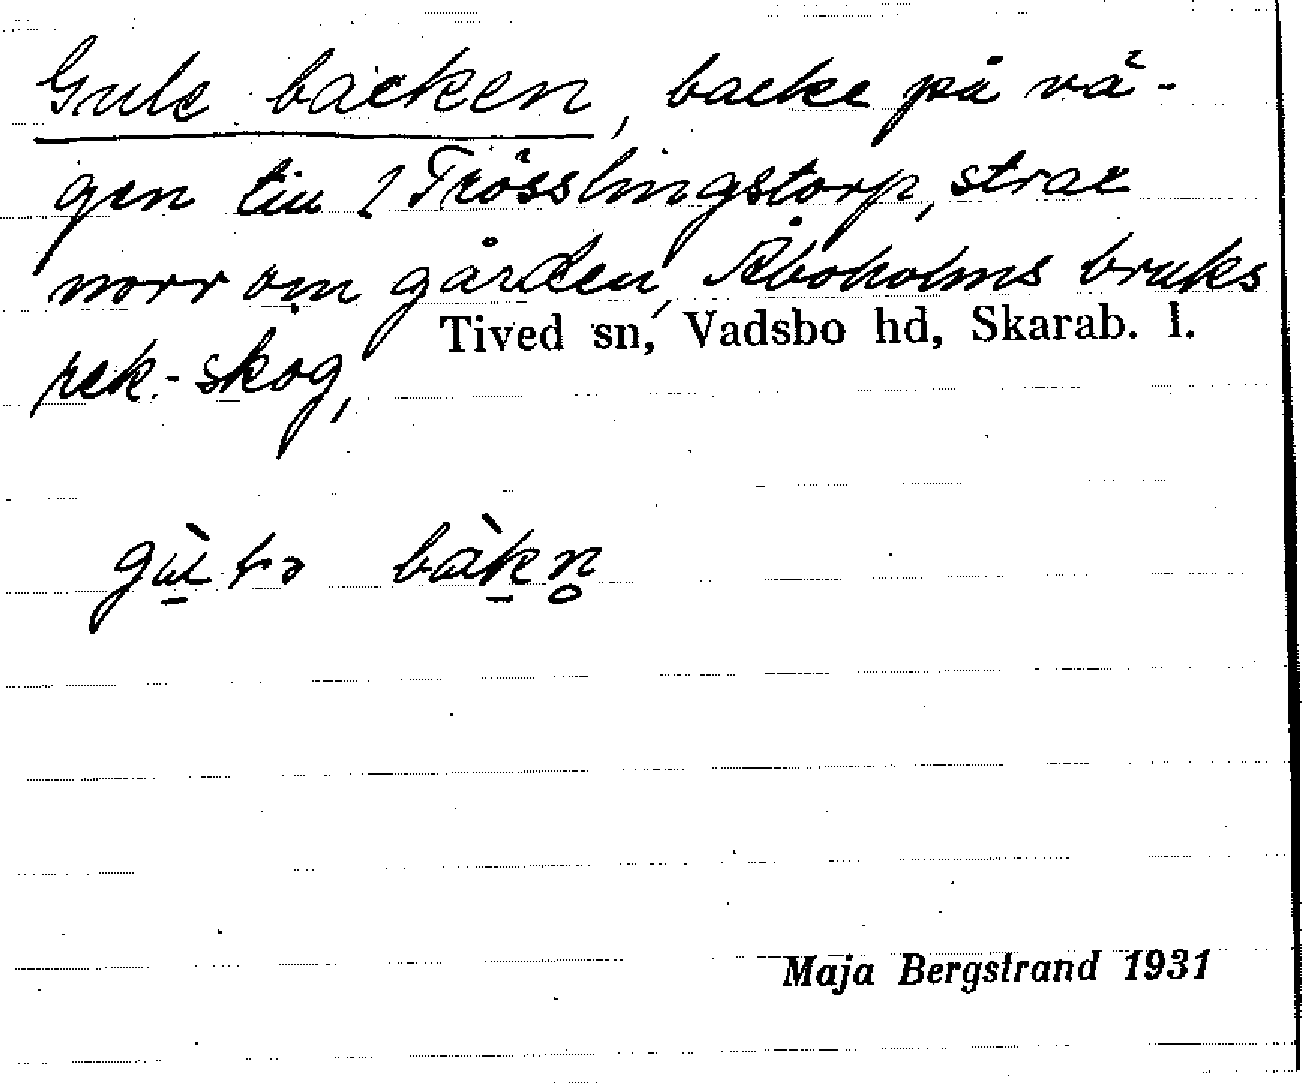 Gule backen, backe på vä-
gen till Trösslingstorp, strax
norr om gården, Åboholms bruks
rek.-skog,
Tived sn, Vadsbo hd, Skarab. l.
bàkn̥
Maja Bergstrand 1931